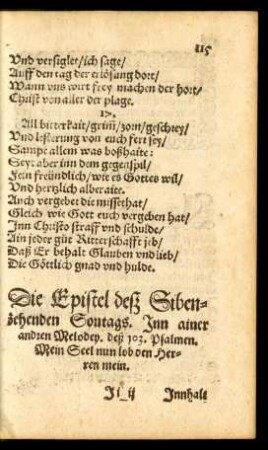 115
Vnd versiglet/ich sage/
Auff den tag der erlösung dort/
Wann vns wirt frey machen der hort/
Christ von aller der plage.
17.
All bitterkait/grim̃/zorn/geschrey/
Vnd lesterung von euch fert sey/
Sampt allem was boßhaite:
Seyt aber inn dem gegenspil/
Fein freündlich/wie es Gottes wil/
Vnd hertzlich alberaite.
Auch vergebet die missethat/
Gleich wie Gott euch vergeben hat/
Inn Christo straff vnd schulde/
Ain jeder güt Ritterschafft jeb/
Daß Er behalt Glauben vnd lieb/
Die Göttlich gnad vnd hulde.
Die Epistel deß Siben-
zehenden Sontags. Inn ainer
andren Melodey. deß 103. Psalmen.
Mein Seel nun lob den Her-
ren mein.
Ii_ij Innhalt